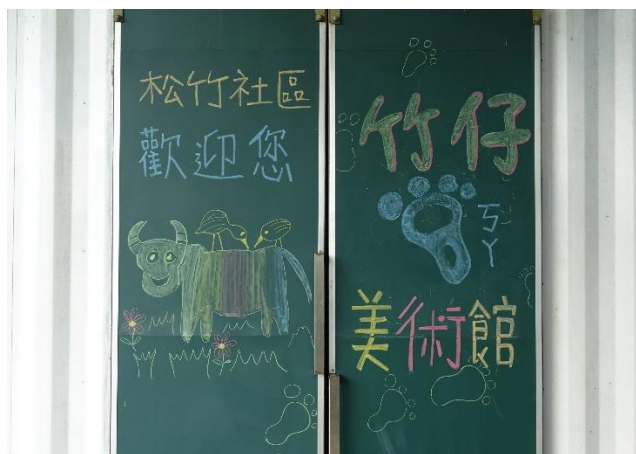 松竹社區
歡迎您
竹仔
ㄎㄚ
美術館